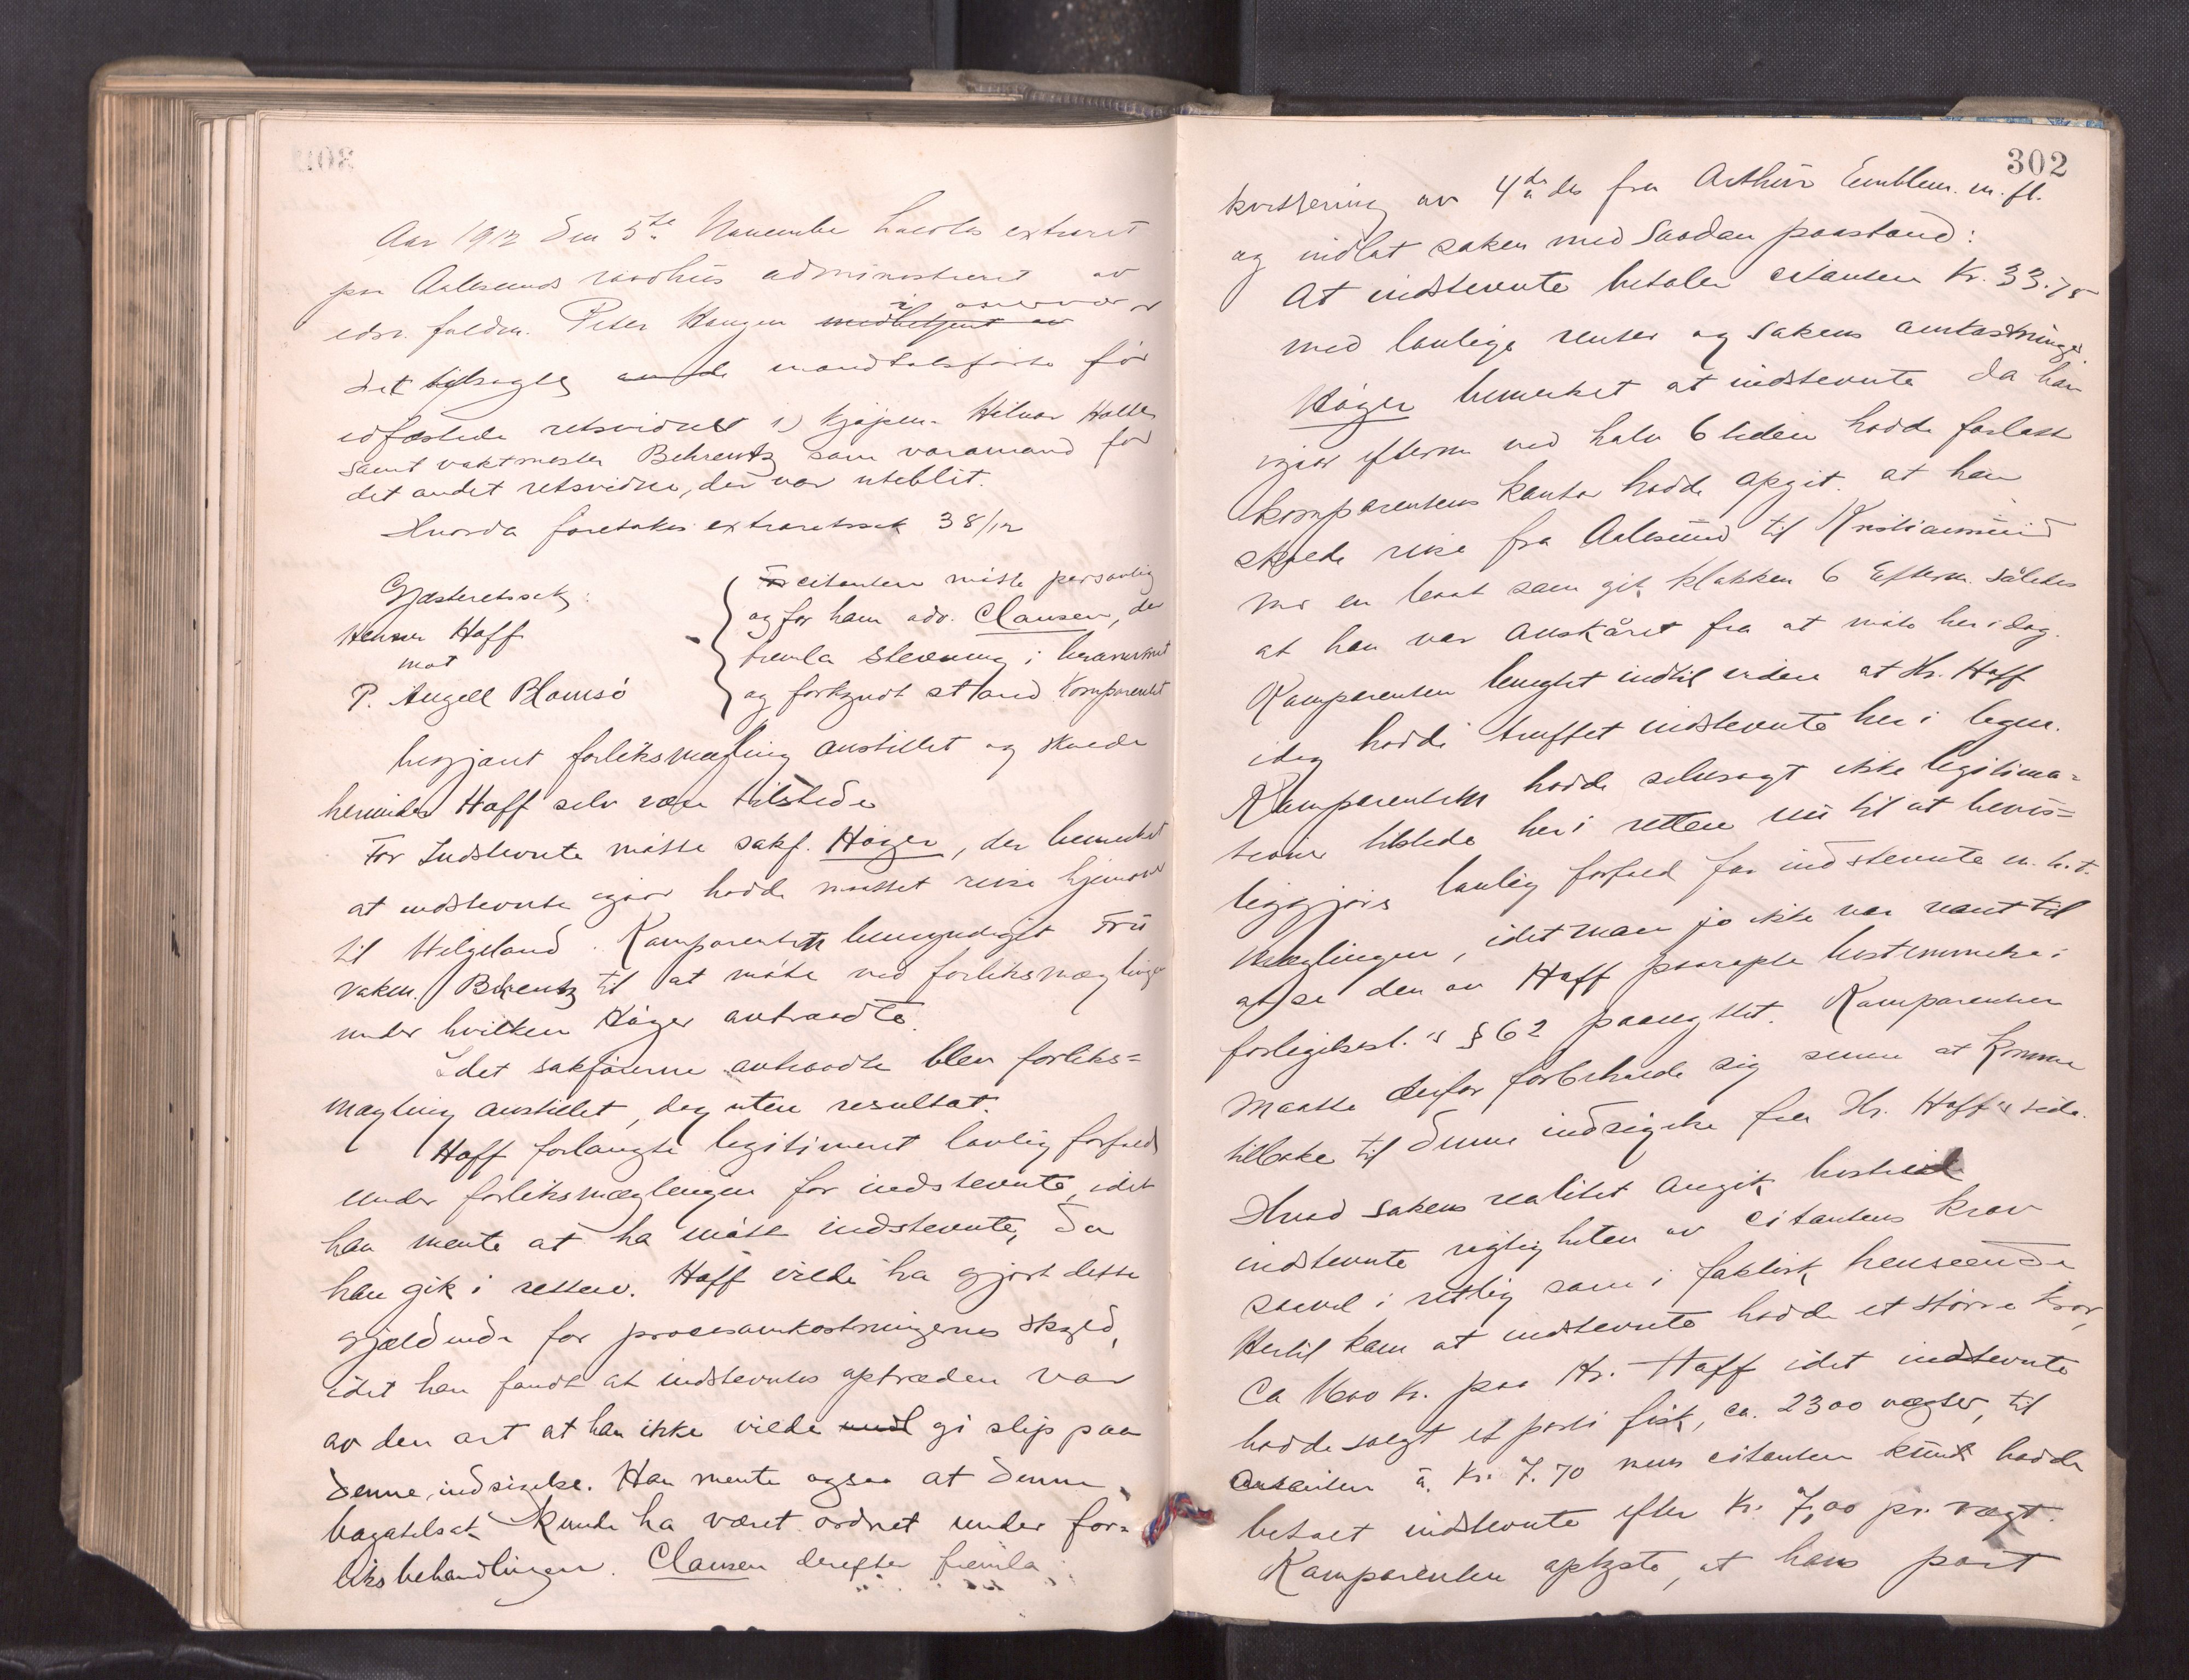 Aar 1912 den 5te November holdtes extraret
paa Aalesunds raadhus administreret av
edsv. fuldm. Peter Haugen medbetjent av i overvær av
det tiltagles ande mandtalsførte før
edfæstede retsvidne 1) kjøpm. Hilmar Holte
samt vaktmester Behrentz som varamand for
det andet retsvidne, der var uteblit.
Hvorda foretokes extraretssak 38/12
Gjesteretssak:
Henrik Hoff
mot
P. Angell Blomsö
For citanten møtte personlig
og for ham adv. Clausen, der
fremla stevning i beramet
og forkyndt stand. Komparenten
begjært forliksmægling anstillet og skulde
herunder Hoff selv være tilstede
For Indstevnte møtte sakf. Höger, der bemerket
at indstevnte igaar hadde maattet reise hjemover
til Helgeland. Komparenten bemyndiget Fru
vaktm. Behrentz til at møte ved forliksmæglingen
under hvilken Höger antraadte.
Idet sakførerne antraadte blev forliks=
mægling anstillet, dog uten resultat.
Hoff forlangte legitimert lovlig forfald
under forliksmæglingen for indstevnte, idet
han mente at ha møtt indstevnte, da
han gik i retten. Hoff vilde ha gjort dette
gjældende for procesomkostningernes skyld,
idet han fandt at indstevntes optræden var
av den art at han ikke vilde und gi slip paa
denne indsigelse. Han mente ogsaa at denne
bagatelsak kunde ha været ordnet under for=
liksbehandlingen. Clausen derefter fremla
302
kvittering av 4de ds fra Arthur Emblem m. fl.
og indlot saken med saadan paastand:
At indstevnte betaler citanten Kr. 33.75
med lovlige renter og sakens omkostninger.
Höger bemerket at indstevnte da han
igaar efterm. ved halv 6 tiden hadde forlatt
komparentens kontor hadde opgit at han
skulde reise fra Aalesund til Kristiansund
med en baat som gik klokken 6 Efterm. således
at han var avskåret fra at møte her idag.
Komparenten benegtet indtil videre at Hr. Hoff
idag hadde truffet indstevnte her i byen.
Komparenten hadde selvsagt ikke legitima=
tioner tilstede her i retten nu til at bevis=
liggjøre lovlig forfald for indstevnte m. h. t.
mæglingen, idet man jo ikke var vant til
at se den av Hoff paaropte bestemmelse i
forligelsesl.'s § 62 paanyttet. Komparenten
maatte derfor forbeholde sig senere at komme
tilbake til denne indsigelse fra Hr. Hoff's side.
Hvad sakens realitet angik bestred
indstevnte rigtigheten av citantens krav
saavel i retslig som i faktisk henseende
Hertil kom at indstevnte hadde et større krav,
ca 1600 kr. paa Hr. Hoff idet indstevnte
hadde solgt et parti fisk, ca. 2300 vægter, til
citanten à kr. 7.70 mens citanten kund hadde
betalt indstevnte efter kr. 7,00 pr. vægt.
Komparenten oplyste, at hans part